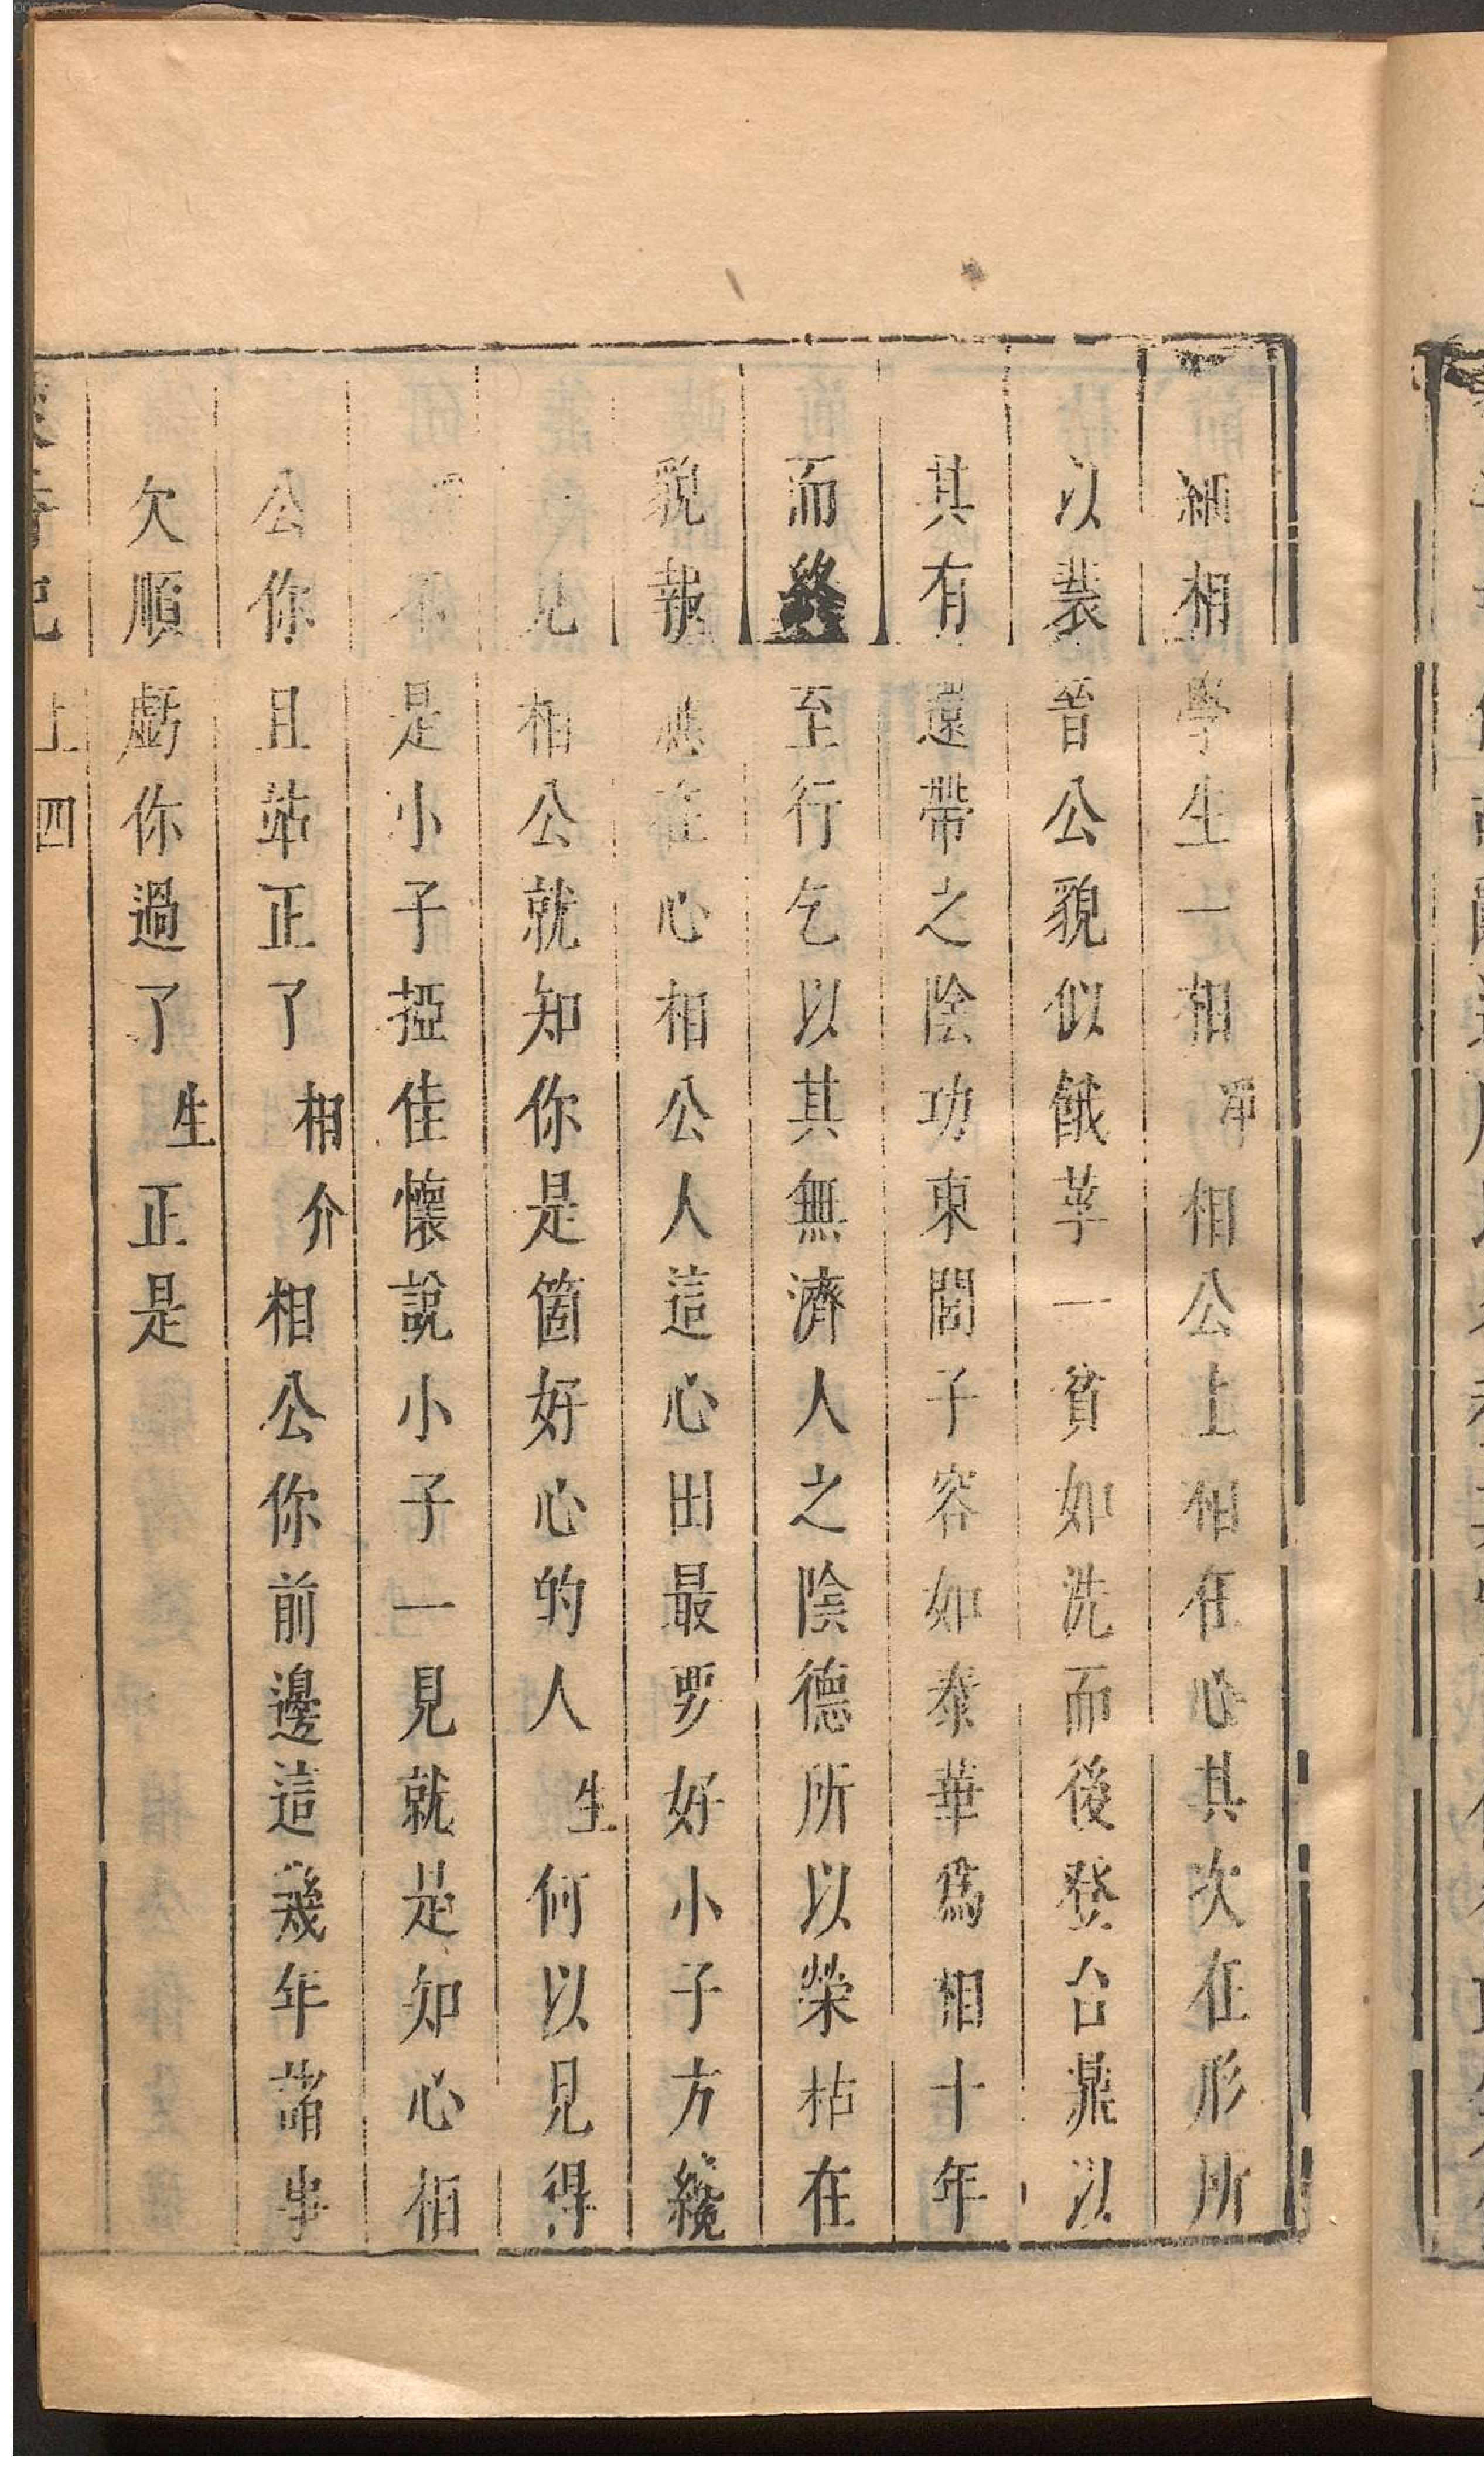 細相學生一相淨相公上相在心其次在形所
以裴晉公貌似餓莩一貧如洗而後登台鼎以
其有還帶之陰功東閣子容如泰華爲相十年
而終至行乞以其無濟人之陰德所以榮枯在
貌報應在心相公人這心田最要好小子方纔
見相公就知你是箇好心的人生何以見得
不是小子挜佳懷說小子一見就是知心相
公你且站正了相介相公你前邊這幾年諸事
欠順虧你過了生正是
上四